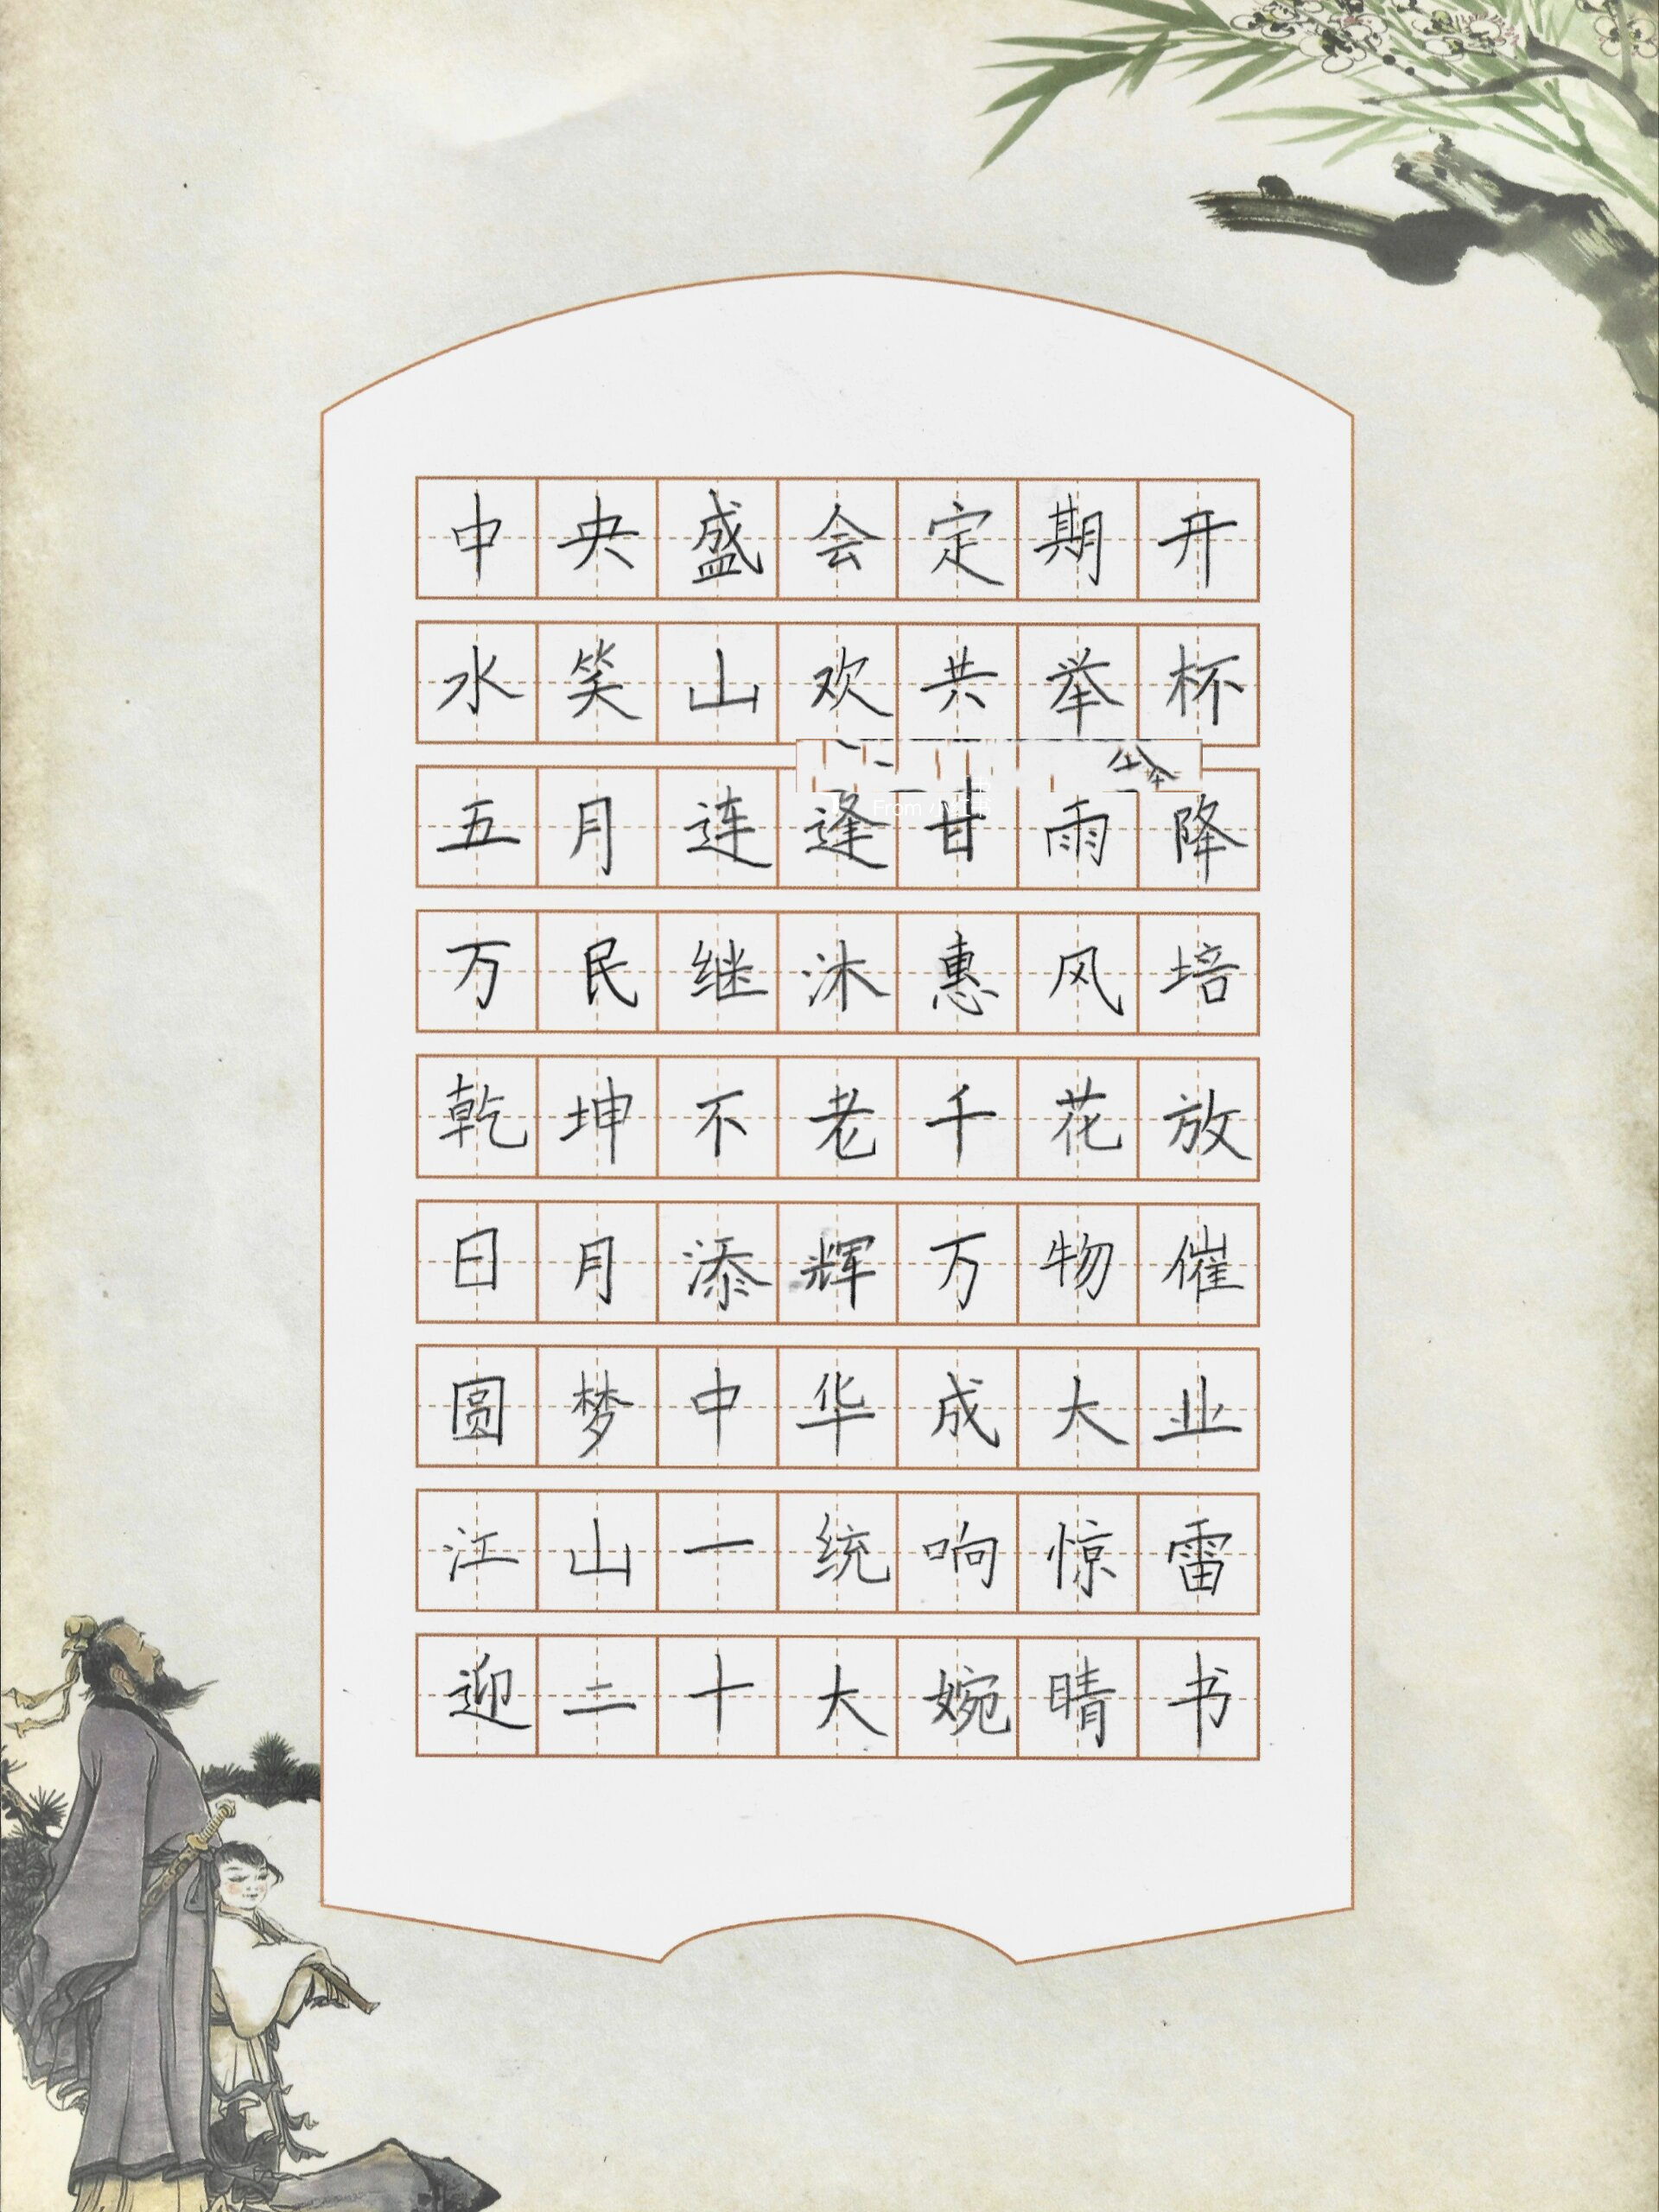 中央盛会定期开
水笑山欢共举杯
五月连逢甘雨降
万民继沐惠风培
乾坤不老千花放
日月添辉万物催
圆梦中华成大业
江山一统响惊雷
迎二十大婉晴书